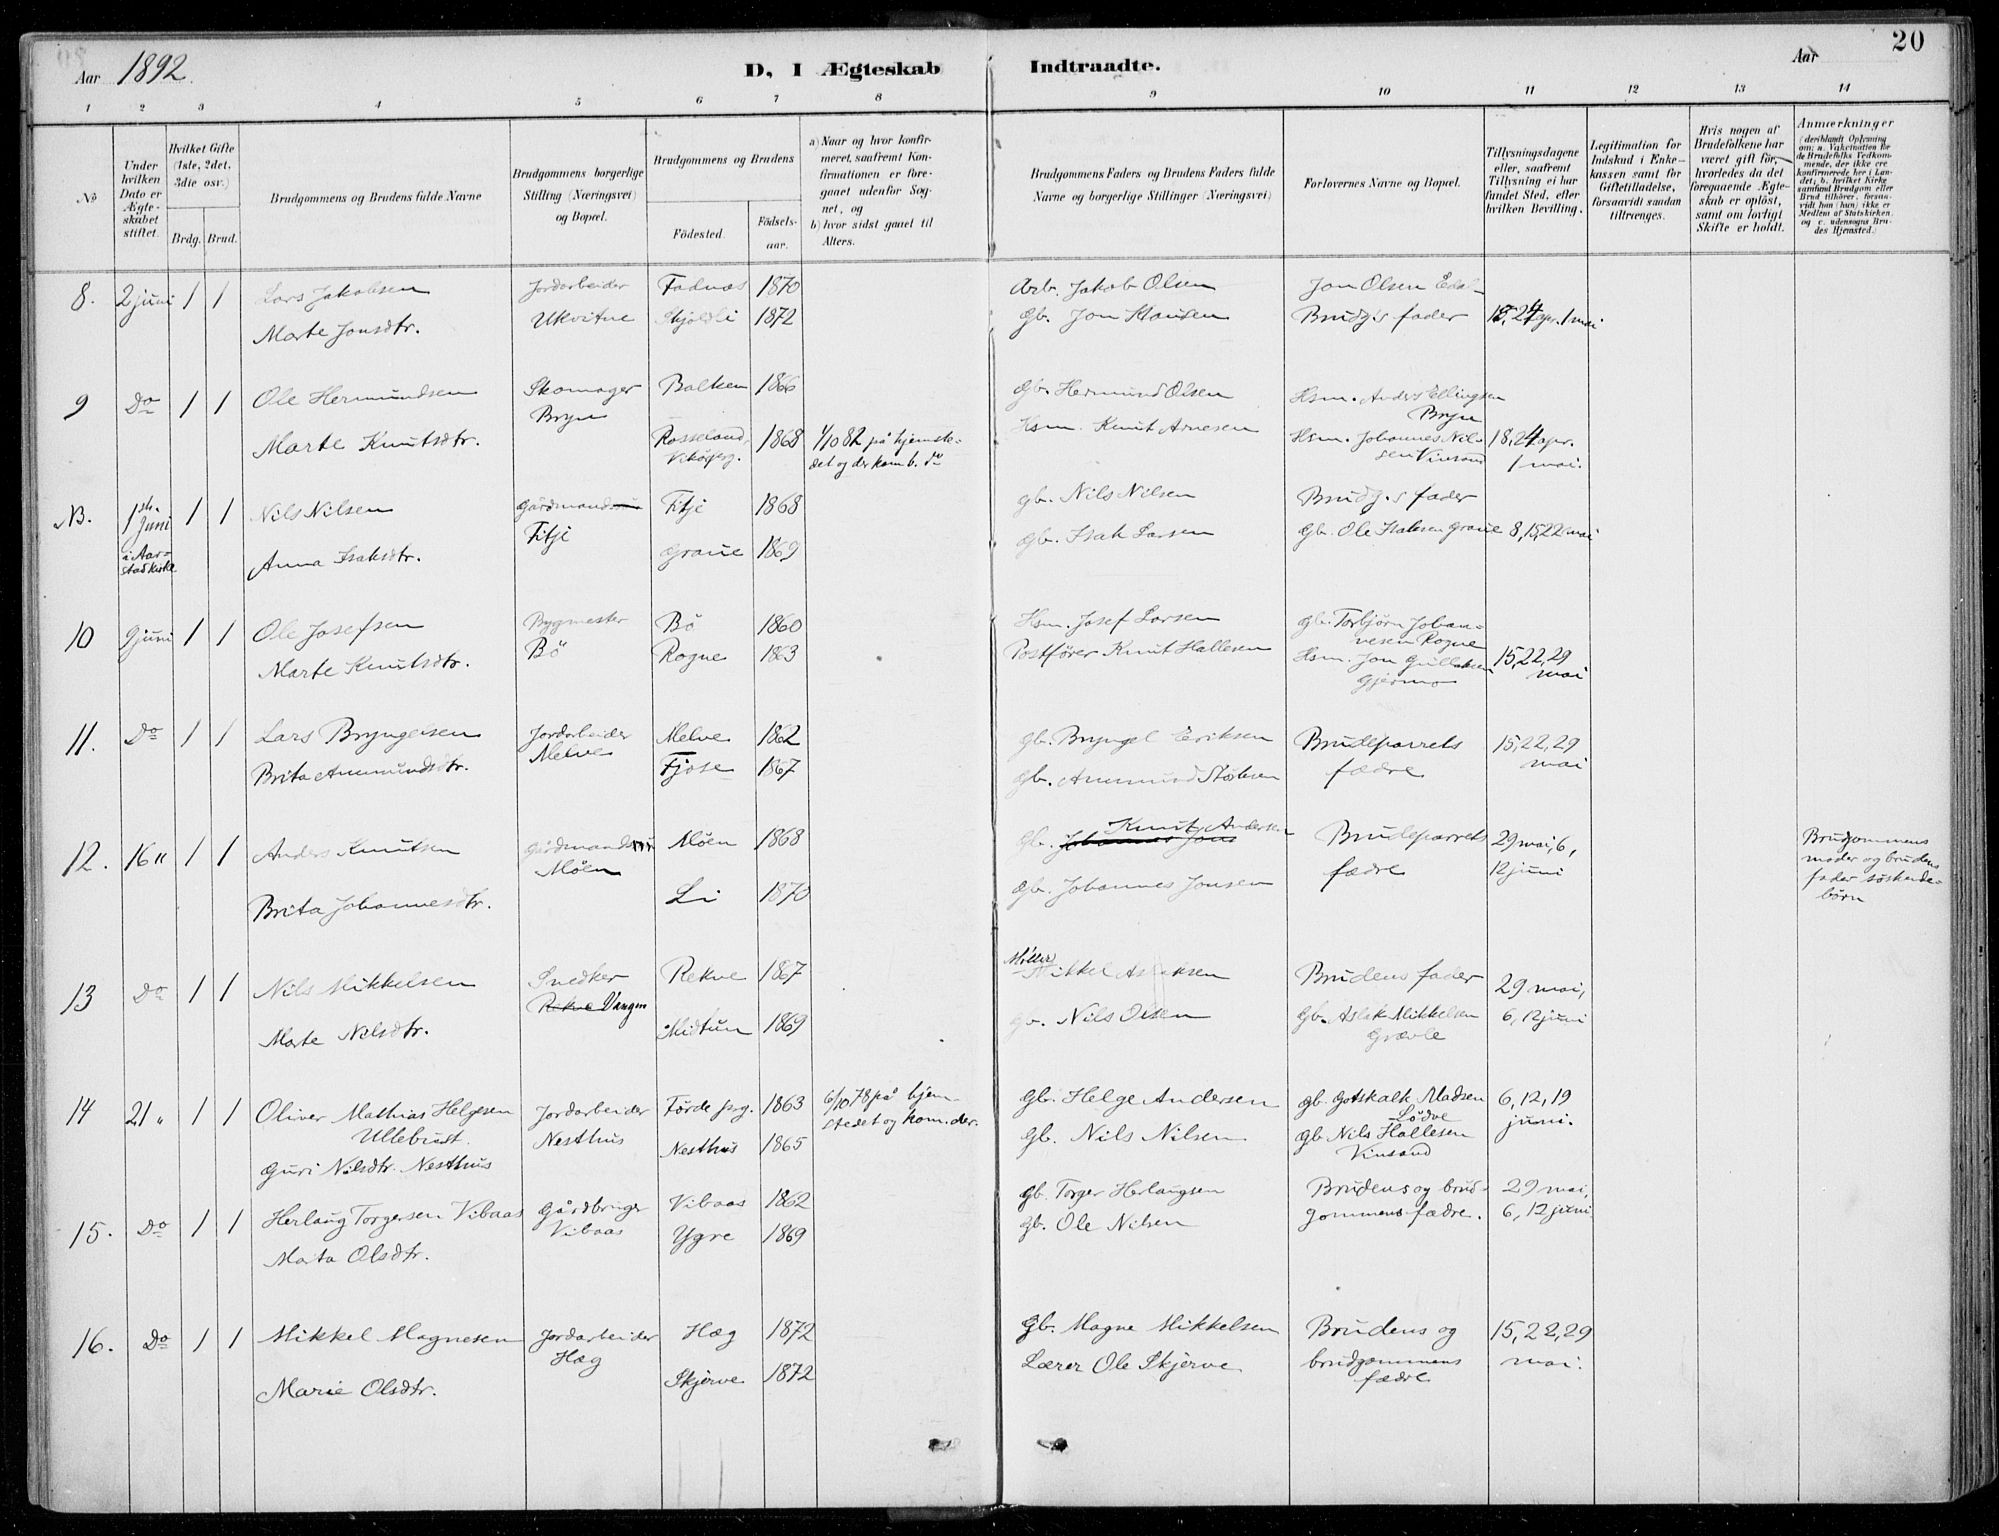 20
Aar 1892.
D, I Ægteskab Indtraadte.
Aar
1 2 3 4 5 6 7 8 9 10 11 12 13 14
No
Under hvilken Dato er Ægteskabet stiftet.
Hvilket Gifte (1ste, 2det, 3die osv.)
Brdg. Brud.
Brudgommens og Brudens fulde Navne
Brudgommens borgerlige Stilling (Næringsvei) og Bopæl.
Brudgommens og Brudens
Födested. Födselsaar.
a) Naar og hvor konfirmeret, saafremt Konfirmationen er foregaaet udenfor Sognet, og
b) hvor sidst gaaet til Alters.
Brudgommens Faders og Brudens Faders fulde Navne og borgerlige Stillinger (Næringsvei)
Forlovernes Navne og Bopæl.
Tillysningsdagene eller, saafremt Tillysning ei har fundet Sted, efter hvilken Bevilling.
Legitimation for Indskud i Enkekassen samt for Giftetilladelse, forsaavidt saadan tiltrænges.
Hvis nogen af Brudefolkene har været gift för, hvorledes da det foregaaende Ægteskab er oplöst, samt om lovligt Skifte er holdt.
Anmærkninger
(deriblandt Oplysning om: a. Vakcination for de Brudefolks Vedkommende, der ikke ere konfirmerede her i Landet, b. hvilket Kirkesamfund Brudgom eller Brud tilhörer, forsaavidt han (hun) ikke er Medlem af Statskirken, og c. udensogns Brudes Hjemsted.)
8. 2 juni 1 1 Lars Jakobsen Jordarbeider Fadnæs 1870 Arb. Jakob Olsen Jon Olsen
Marte Jonsdtr. Ukvitne Skjoldli 1872 Gb. Jon Klausen Brudg's fader 18, 24 apr. 1 mai
9 Do 1 1 Ole Hermundsen Skomager Balken 1866 Gb. Hermund Olsen Hsm. Anders Ellingsen
Bryn Bryn
Marte Knutsdtr. Rosseland, 1868 1/10 82 på hjemste- Hsm. Knut Arnesen Hsm. Johannes Nil- 18, 24 apr.
Vikørprg. det og der kom b. do sen Vinsand 1 mai.
NB. 1ste Juni 1 1 Nils Nilsen Gårdmand Fitje 1868 Gb. Nils Nilsen Brudg's fader
i Aar- Fitje
stad kirke Anna Isaksdtr. Graue 1869 Gb. Isak Larsen Gb. Ole Isaksen Graue 8, 15, 22 mai
10 9 juni 1 1 Ole Josefsen Bygmester Bö 1860 Hsm. Josef Larsen Gb. Torbjørn Johan-
nesen Rogne
Marte Knutsdtr. Bö Rogne 1863 Postfører Knut Hallesen Hsm. Jon Gulleksen 15, 22, 29
Gjermo mai
11. Do 1 1 Lars Bryngelsen Jordarbeider Melve 1862 Gb. Bryngel Eriksen Brudeparrets 15, 22, 29
Brita Ammundsdtr. Melve Fjose 1867 Gb. Ammund fædre mai
12. 16 " 1 1 Anders Knutsen Gårdmandssön Möen 1868 Gb. Johannes Jons Knut Andersen Brudeparrets 29 mai, 6, Brudgommens
Möen fædre 12 juni moder og brudens
Brita Johannesdtr. Li 1870 Gb. Johannes Jonsen fader söskende-
börn
13 Do 1 1 Nils Mikkelsen Snedker Rekve 1867 Möller Mikkel Aslaksen Brudens fader 29 mai,
Rekve Vangen
Marte Nilsdtr. Midtun 1869 Gb. Nils Olsen Gb. Aslak Mikkelsen 6, 12 juni
Grævle
14 21 " 1 1 Oliver Mathias Helgesen Jordarbeider Förde prg. 1863 6/10 78 på hjem- Gb. Helge Andersen Gb. Gotskalk Madsen 6, 12, 19
Ullebust. Nesthus stedet og kom. der. Lödve juni.
Guri Nilsdtr. Nesthus Nesthus 1865 Gb. Nils Nilsen Gb Nils Hallesen
Vinsand
15. Do 1 1 Herlaug Torgersen Vibaas Gårdbruger Vibaas 1862 Gb. Torger Herlaugsen Brudens og brud- 29 mai,
Marta Olsdtr. Vibaas Ygre 1869 Gb. Ole Nilsen gommens fædre. 6, 12 juni
16. Do 1 1 Mikkel Magnesen Jordarbeider Hæg 1872 Gb. Magne Mikkelsen Brudens og 15, 22, 29
Hæg brudgommens mai.
Marie Olsdtr. Skjerve 1872 Lærer Ole Skjerve fædre